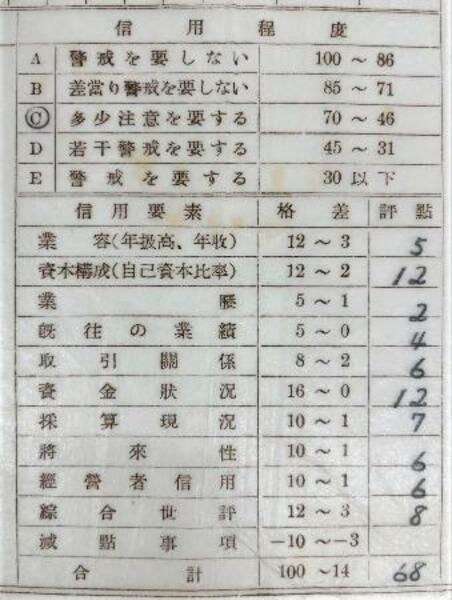 信用程度
A 警戒を要しない 100～86
B 差當り警戒を要しない 85～71
C 多少注意を要する 70～46
D 若干警戒を要する 45～31
E 警戒を要する 30以下
信用要素 格差 評點
業容(年扱高、年收) 12～3 5
資本構成(自己資本比率) 12～2 12
業歴 5～1 2
既往の業績 5～0 4
取引關係 8～2 6
資金狀況 16～0 12
採算現況 10～1 7
將來性 10～1 6
經營者信用 10～1 6
綜合世評 12～3 8
減點事項 －10～－3
合計 100～14 68